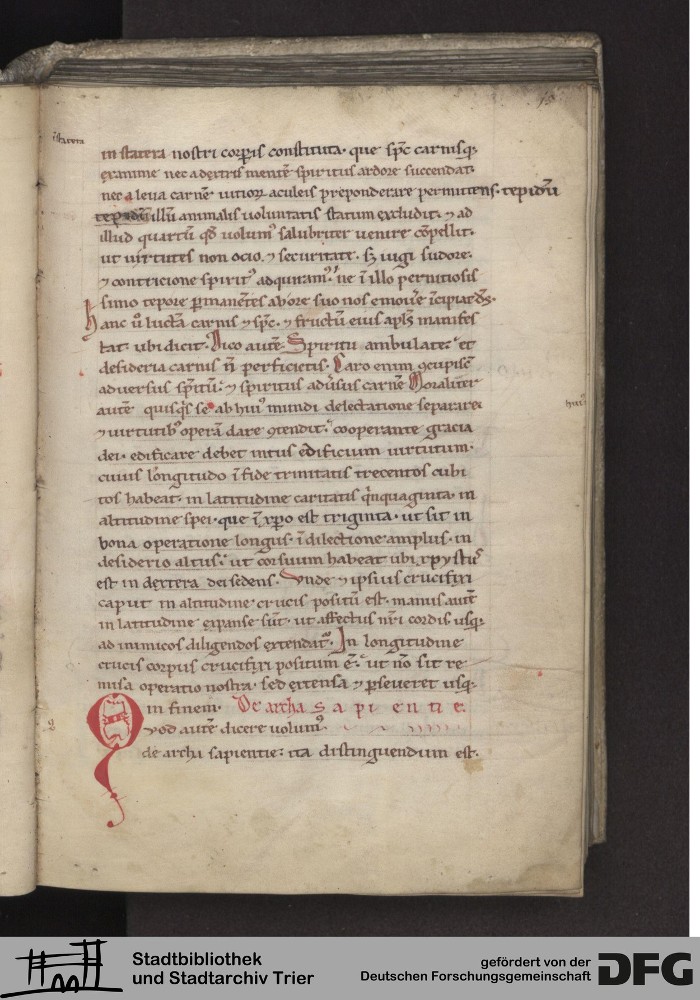 15
in statera
in statera nostri corp̄is constituta. que sp̄c carnisq;
examine nec adextris mentē spiritus ardore succendat.
nec a leua carnē uitioꝝ aculeis preponderare permittens. tepidū
illū animalis uoluntatis statum excludit. ⁊ ad
illud quartū qd̄ uolum᷒ salubriter uenire cōpellit.
ut uirtutes non ocio. ⁊ securitate. sꝫ iugi sudore.
⁊ contricione spirit᷒ adquiram᷒. ne ī illo pernitiosis
simo tepore ꝑmanētes ab ore suo nos emouere īcipiat ds̄.
Hanc ū luctā carnis ⁊ sp̄c. ⁊ fructū eius apl̄s manifes
tat. ubi dicit. Dico autē. Spiritu ambulate. et
desideria carnis n̄ perficietis. Caro enim ꝯcupiscē
aduersus sp̄itū. ⁊ spiritus adūsus carnē Moraliter
autē quisq̄s se ab hui᷒ mundi delectatione separare
hui᷒
⁊ uirtutib᷒ operā dare ꝯtendit. cooperante gracia
dei. edificare debet intus edificium uirtutum.
cuius lōngitudo ī fide trinitatis trecentos cubi
tos habeat. in latitudine caritatis q̄nquaginta. in
altitudine spei. que ī xp̄o est triginta. ut sit in
bona operatione longus. ī dilectione amplus. in
desiderio altus. ut cor suum habeat ubi xpystus
est in dextera dei sedens. Vnde ⁊ ipsius crucifixi
caput in altitudine crucis positū est. manus autē
in latitudine expanse sūt. ut affectus nr̄i cordis usq;
ad inimicos diligendos extendat᷒. In longitudine
crucis corpus crucifixi positum ē. ut nō sit re
missa operatio nostra. sed extensa ⁊ ꝑseueret usq;
in finem. De archa sapientie.
Quod autē dicere uolum᷒
de archa sapientie. ita distinguendum est.
Stadtbibliothek
und Stadtarchiv Trier
gefördert von der
Deutschen Forschungsgemeinschaft
DFG